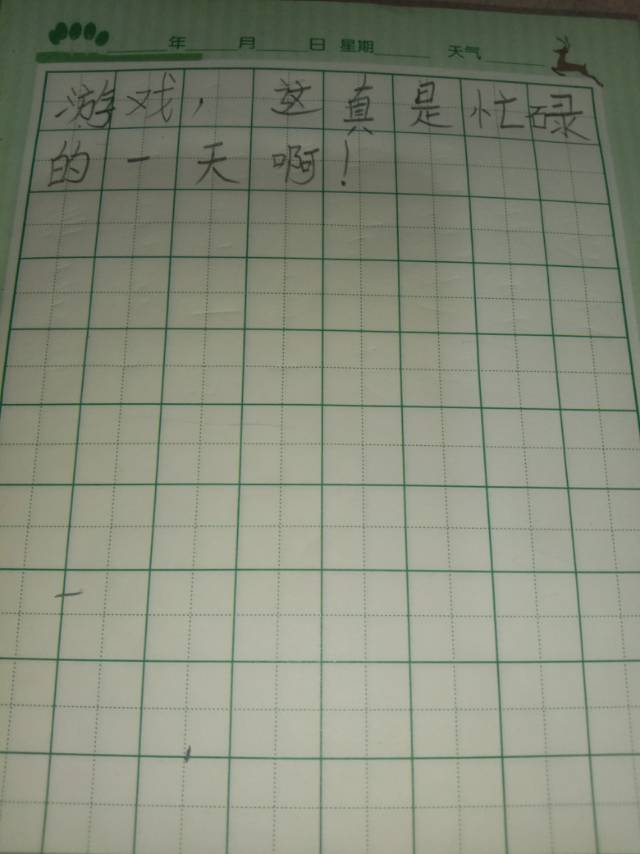 年 月 日 星期 天气
游戏，这真是忙碌
的一天啊！